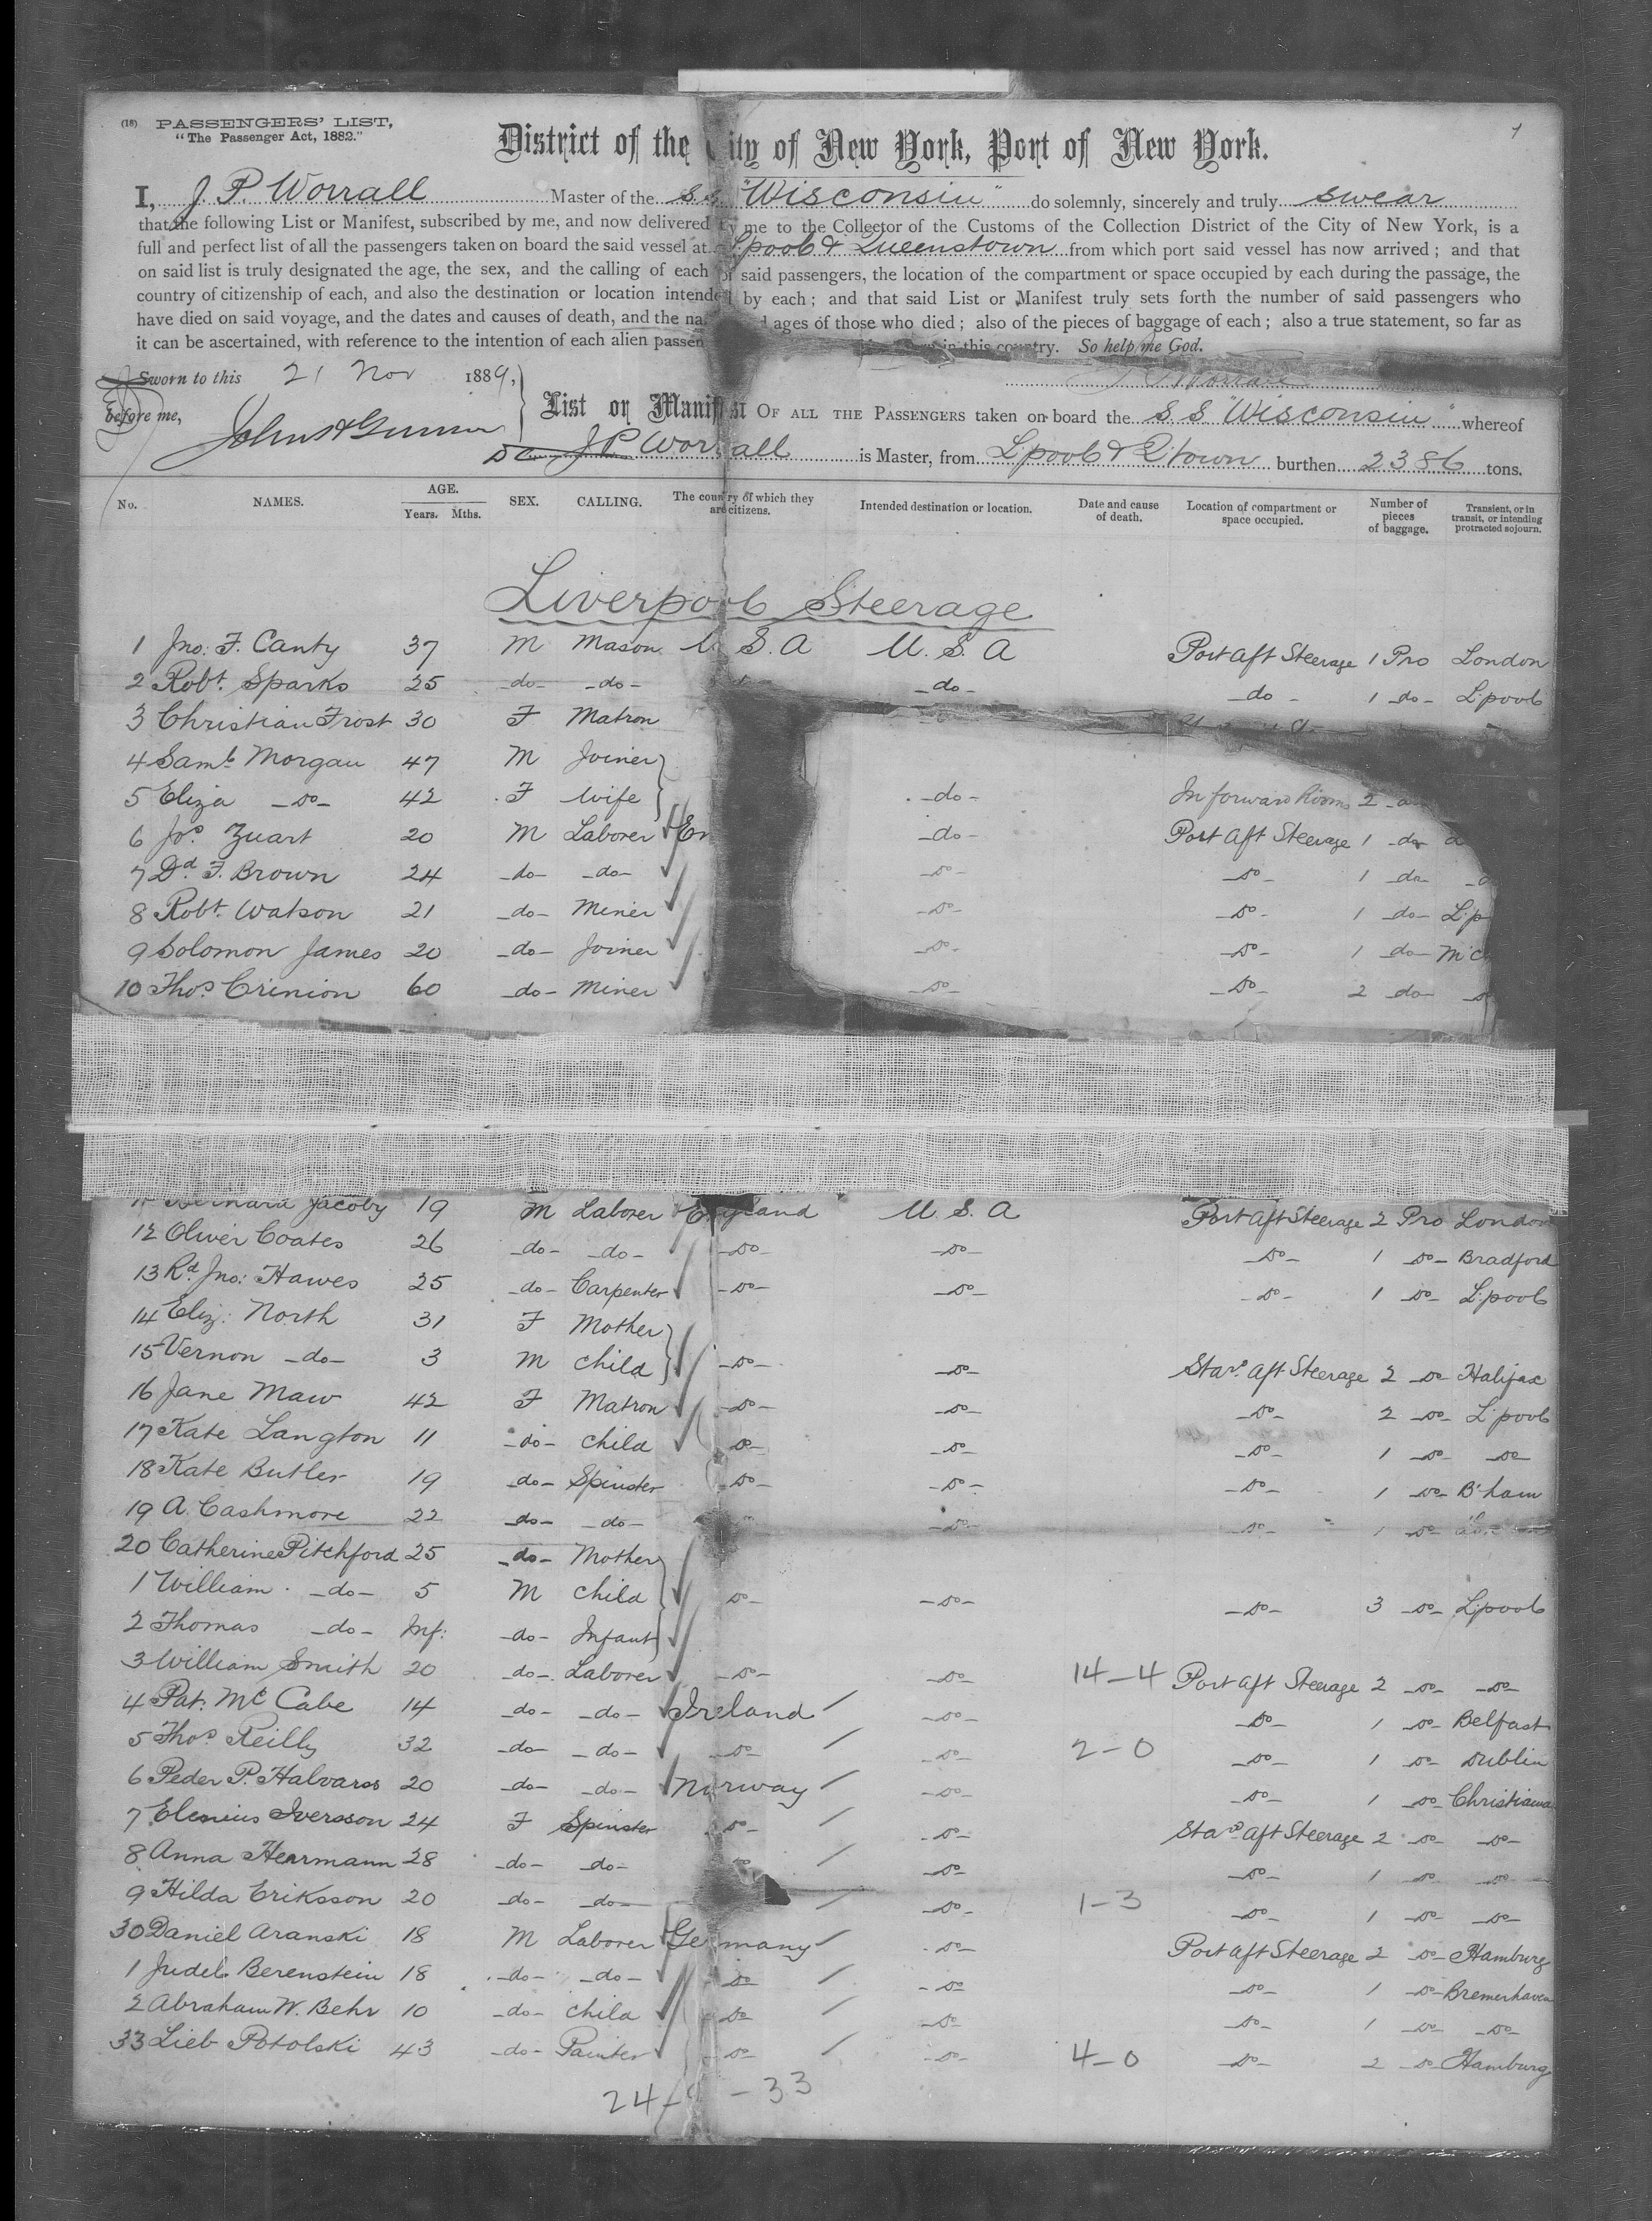 (18) PASSENGERS' LIST,
"The Passenger Act, 1882."
1
District of the City of New York, Port of New York.
I, J. P. Worrall Master of the S.S. "Wisconsin" do solemnly, sincerely and truly swear
that the following List or Manifest, subscribed by me, and now delivered by me to the Collector of the Customs of the Collection District of the City of New York, is a
full and perfect list of all the passengers taken on board the said vessel at L'pool & Queenstown from which port said vessel has now arrived; and that
on said list is truly designated the age, the sex, and the calling of each of said passengers, the location of the compartment or space occupied by each during the passage, the
country of citizenship of each, and also the destination or location intended by each; and that said List or Manifest truly sets forth the number of said passengers who
have died on said voyage, and the dates and causes of death, and the na ages of those who died; also of the pieces of baggage of each; also a true statement, so far as
it can be ascertained, with reference to the intention of each alien passen in this country. So help me God.
Sworn to this 21 Nov 1889,
before me,
List or Manifest OF ALL THE PASSENGERS taken on board the S.S. "Wisconsin" whereof
J P Worrall is Master, from L'pool & Q'town burthen 2386 tons.
No. NAMES. AGE. Years. Mths. SEX. CALLING. The country of which they are citizens. Intended destination or location. Date and cause of death. Location of compartment or space occupied. Number of pieces of baggage. Transient, or in transit, or intending protracted sojourn.
Liverpool Steerage
1 Jno: F. Canty 37 M Mason U.S.A U.S.A Port Aft Steerage 1 Pro London
2 Robt. Sparks 25 -do- -do- -do- -do- 1 -do- L'pool
3 Christian Frost 30 F Matron
4 Saml. Morgan 47 M Joiner
5 Eliza -do- 42 F Wife -do- In forward Rooms 2
6 Jos. Zuart 20 M Laborer En -do- Port Aft Steerage 1 -do-
7 Dd. F. Brown 24 -do- -do- -do- -do- 1 -do-
8 Robt. Watson 21 -do- Miner -do- -do- 1 -do- L'p
9 Solomon James 20 -do- Joiner -do- -do- 1 -do- M'c
10 Thos. Crinion 60 -do- Miner -do- -do- 2 -do-
11 Bernard Jacoby 19 M Laborer England U.S.A Port Aft Steerage 2 Pro London
12 Oliver Coates 26 -do- -do- -do- -do- -do- 1 -do- Bradford
13 Rd. Jno: Hawes 25 -do- Carpenter -do- -do- -do- 1 -do- L'pool
14 Eliz: North 31 F Mother
15 Vernon -do- 3 M Child -do- -do- Stard. Aft Steerage 2 -do- Halifax
16 Jane Maw 42 F Matron -do- -do- -do- 2 -do- L'pool
17 Kate Langton 11 -do- Child -do- -do- -do- 1 -do- -do-
18 Kate Butler 19 -do- Spinster -do- -do- -do- 1 -do- B'ham
19 A. Cashmore 22 -do- -do- -do- -do- 1 -do-
20 Catherine Pitchford 25 -do- Mother
1 William -do- 5 M Child -do- -do- -do- 3 -do- L'pool
2 Thomas -do- Inf: -do- Infant
3 William Smith 20 -do- Laborer -do- -do- 14-4 Port Aft Steerage 2 -do- -do-
4 Pat: Mc Cabe 14 -do- -do- Ireland -do- -do- 1 -do- Belfast
5 Thos. Reilly 32 -do- -do- -do- -do- 2-0 -do- 1 -do- Dublin
6 Peder P. Halvarss 20 -do- -do- Norway -do- -do- 1 -do- Christiania
7 Elenius Iversson 24 F Spinster -do- -do- Stard. Aft Steerage 2 -do- -do-
8 Anna Hearmann 28 -do- -do- -do- -do- -do- 1 -do- -do-
9 Hilda Eriksson 20 -do- -do- -do- 1-3 -do- 1 -do- -do-
30 Daniel Aranski 18 M Laborer Germany -do- Port Aft Steerage 2 -do- Hamburg
1 Judel Berenstein 18 -do- -do- -do- -do- -do- 1 -do- Bremerhaven
2 Abraham W. Behr 10 -do- Child -do- -do- -do- 1 -do- -do-
33 Lieb Potolski 43 -do- Painter -do- -do- 4-0 -do- 2 -do- Hamburg
24 - 33